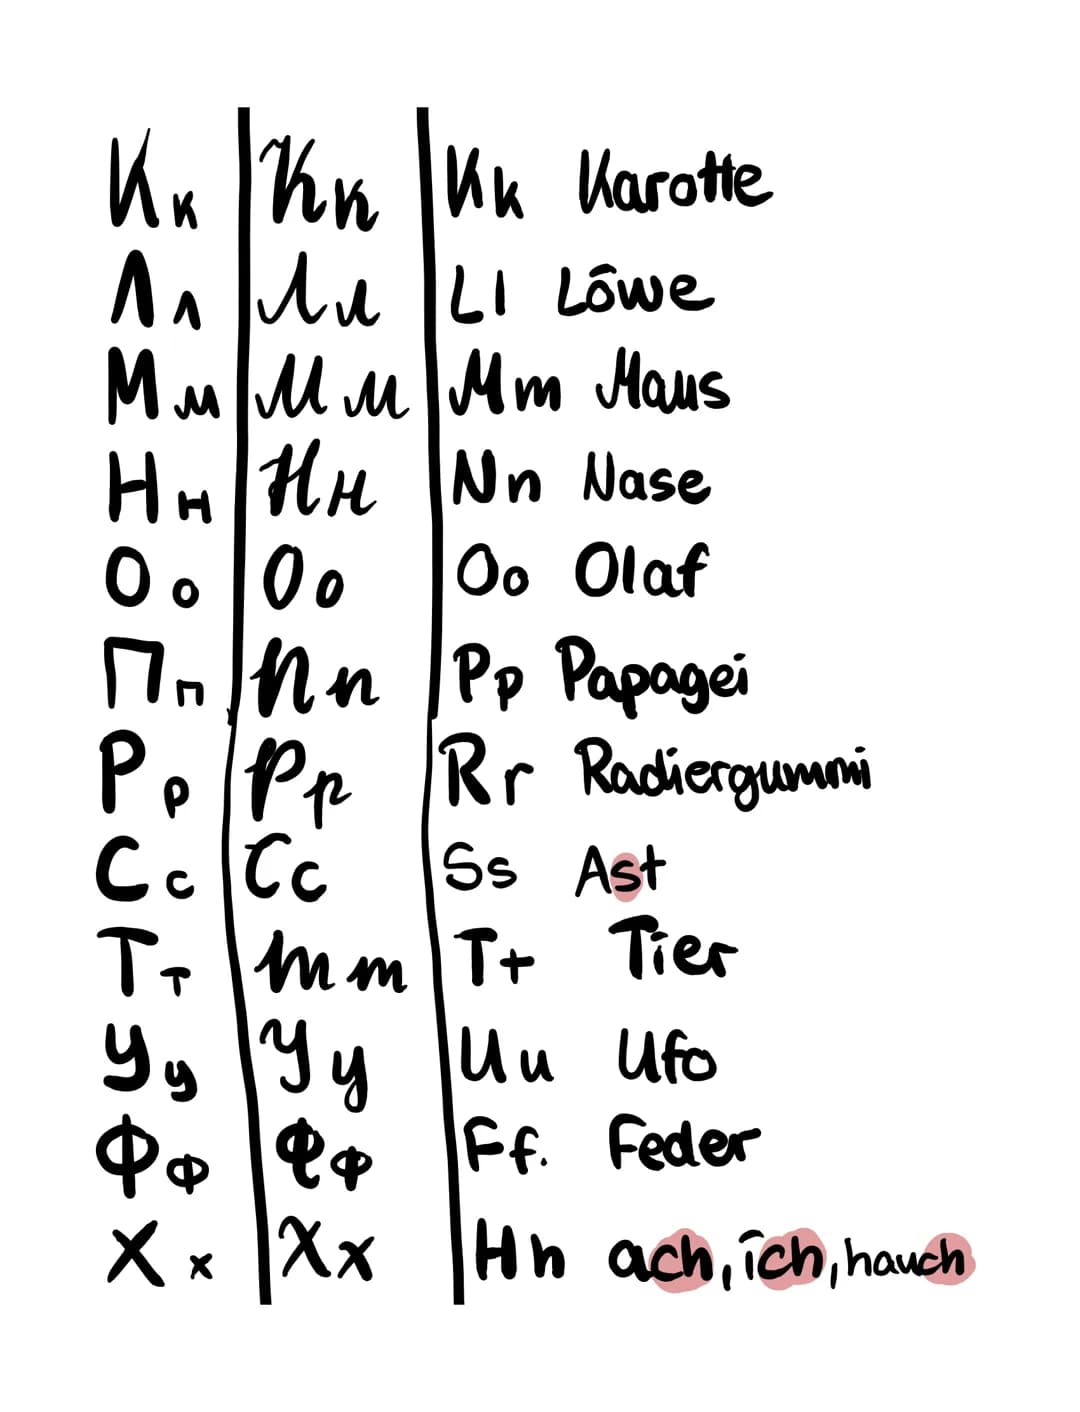 Кк Кк Kk Karotte
Лл Лл Ll Löwe
Мм Мм Mm Maus
Нн Нн Nn Nase
Оо Оо Oo Olaf
Пп Пп Pp Papagei
Рр Рр Rr Radiergummi
Сс Сс Ss Ast
Тт Тт Tt Tier
Уу Уу Uu Ufo
Фф Фф Ff. Feder
Хх Хх Hh ach, ich, hauch